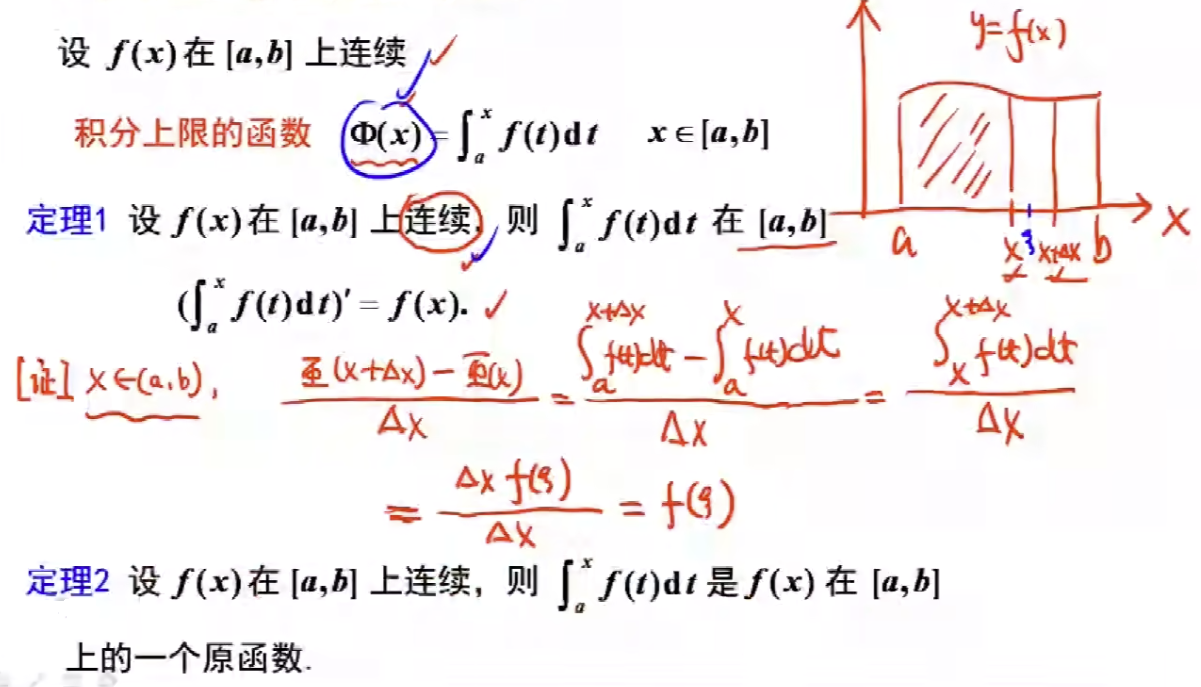 设 f(x) 在 [a,b] 上连续 ✓
y=f(x)
积分上限的函数 Φ(x) = ∫ₐˣ f(t)dt x∈[a,b]
定理1 设 f(x) 在 [a,b] 上连续，则 ∫ₐˣ f(t)dt 在 [a,b]
a x ξ x+Δx b X
(∫ₐˣ f(t)dt)′ = f(x). ✓
[证] x∈(a,b), (Φ(x+Δx) − Φ(x))/Δx = (∫ₐ^{x+Δx} f(t)dt − ∫ₐˣ f(t)dt)/Δx = (∫ₓ^{x+Δx} f(t)dt)/Δx
= (Δx f(ξ))/Δx = f(ξ)
定理2 设 f(x) 在 [a,b] 上连续，则 ∫ₐˣ f(t)dt 是 f(x) 在 [a,b]
上的一个原函数.